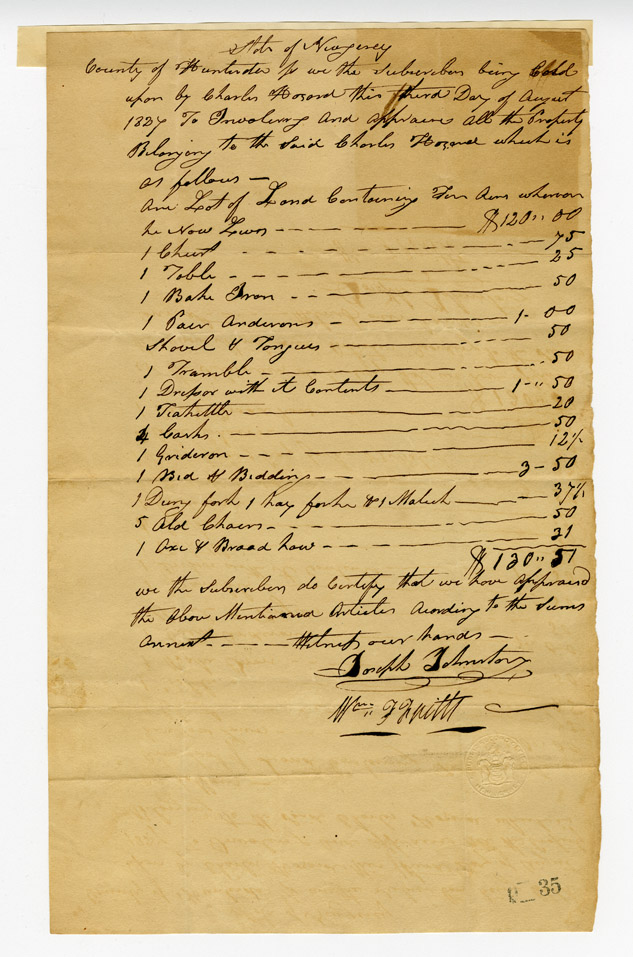 State of Newgersey
County of Hunterdon ss we the Subscribers being Cald
upon by Charles Hozard this third Day of August
1837 To Involering and appraise All the Property
Belonging to the Said Charles Hozard which is
as follows —
one Lot of Land Containing Ten Acres whereon
he Now Lives — $120,, 00
1 Chest — 75
1 Table — 25
1 Bake Iron — 50
1 Pair Anderons — 1- 00
Shovel & Tongues — 50
1 Tramble — 50
1 Dresor with it Contents — 1-,, 50
1 Teakettle — 20
4 Casks — 50
1 Grideron — 12½
1 Bed & Bedding — 3 - 50
1 Dung fork 1 hay forke & 1 — 37½
5 Old Chaers — 50
1 Axe & Broad how — 31
$130,, 51
we the Subscribers do Certify that we have appraised
the Above Mentioned Articles Acording to the Sums
Annext — Witness our hands —
Joseph Johnston
Wm,,
35